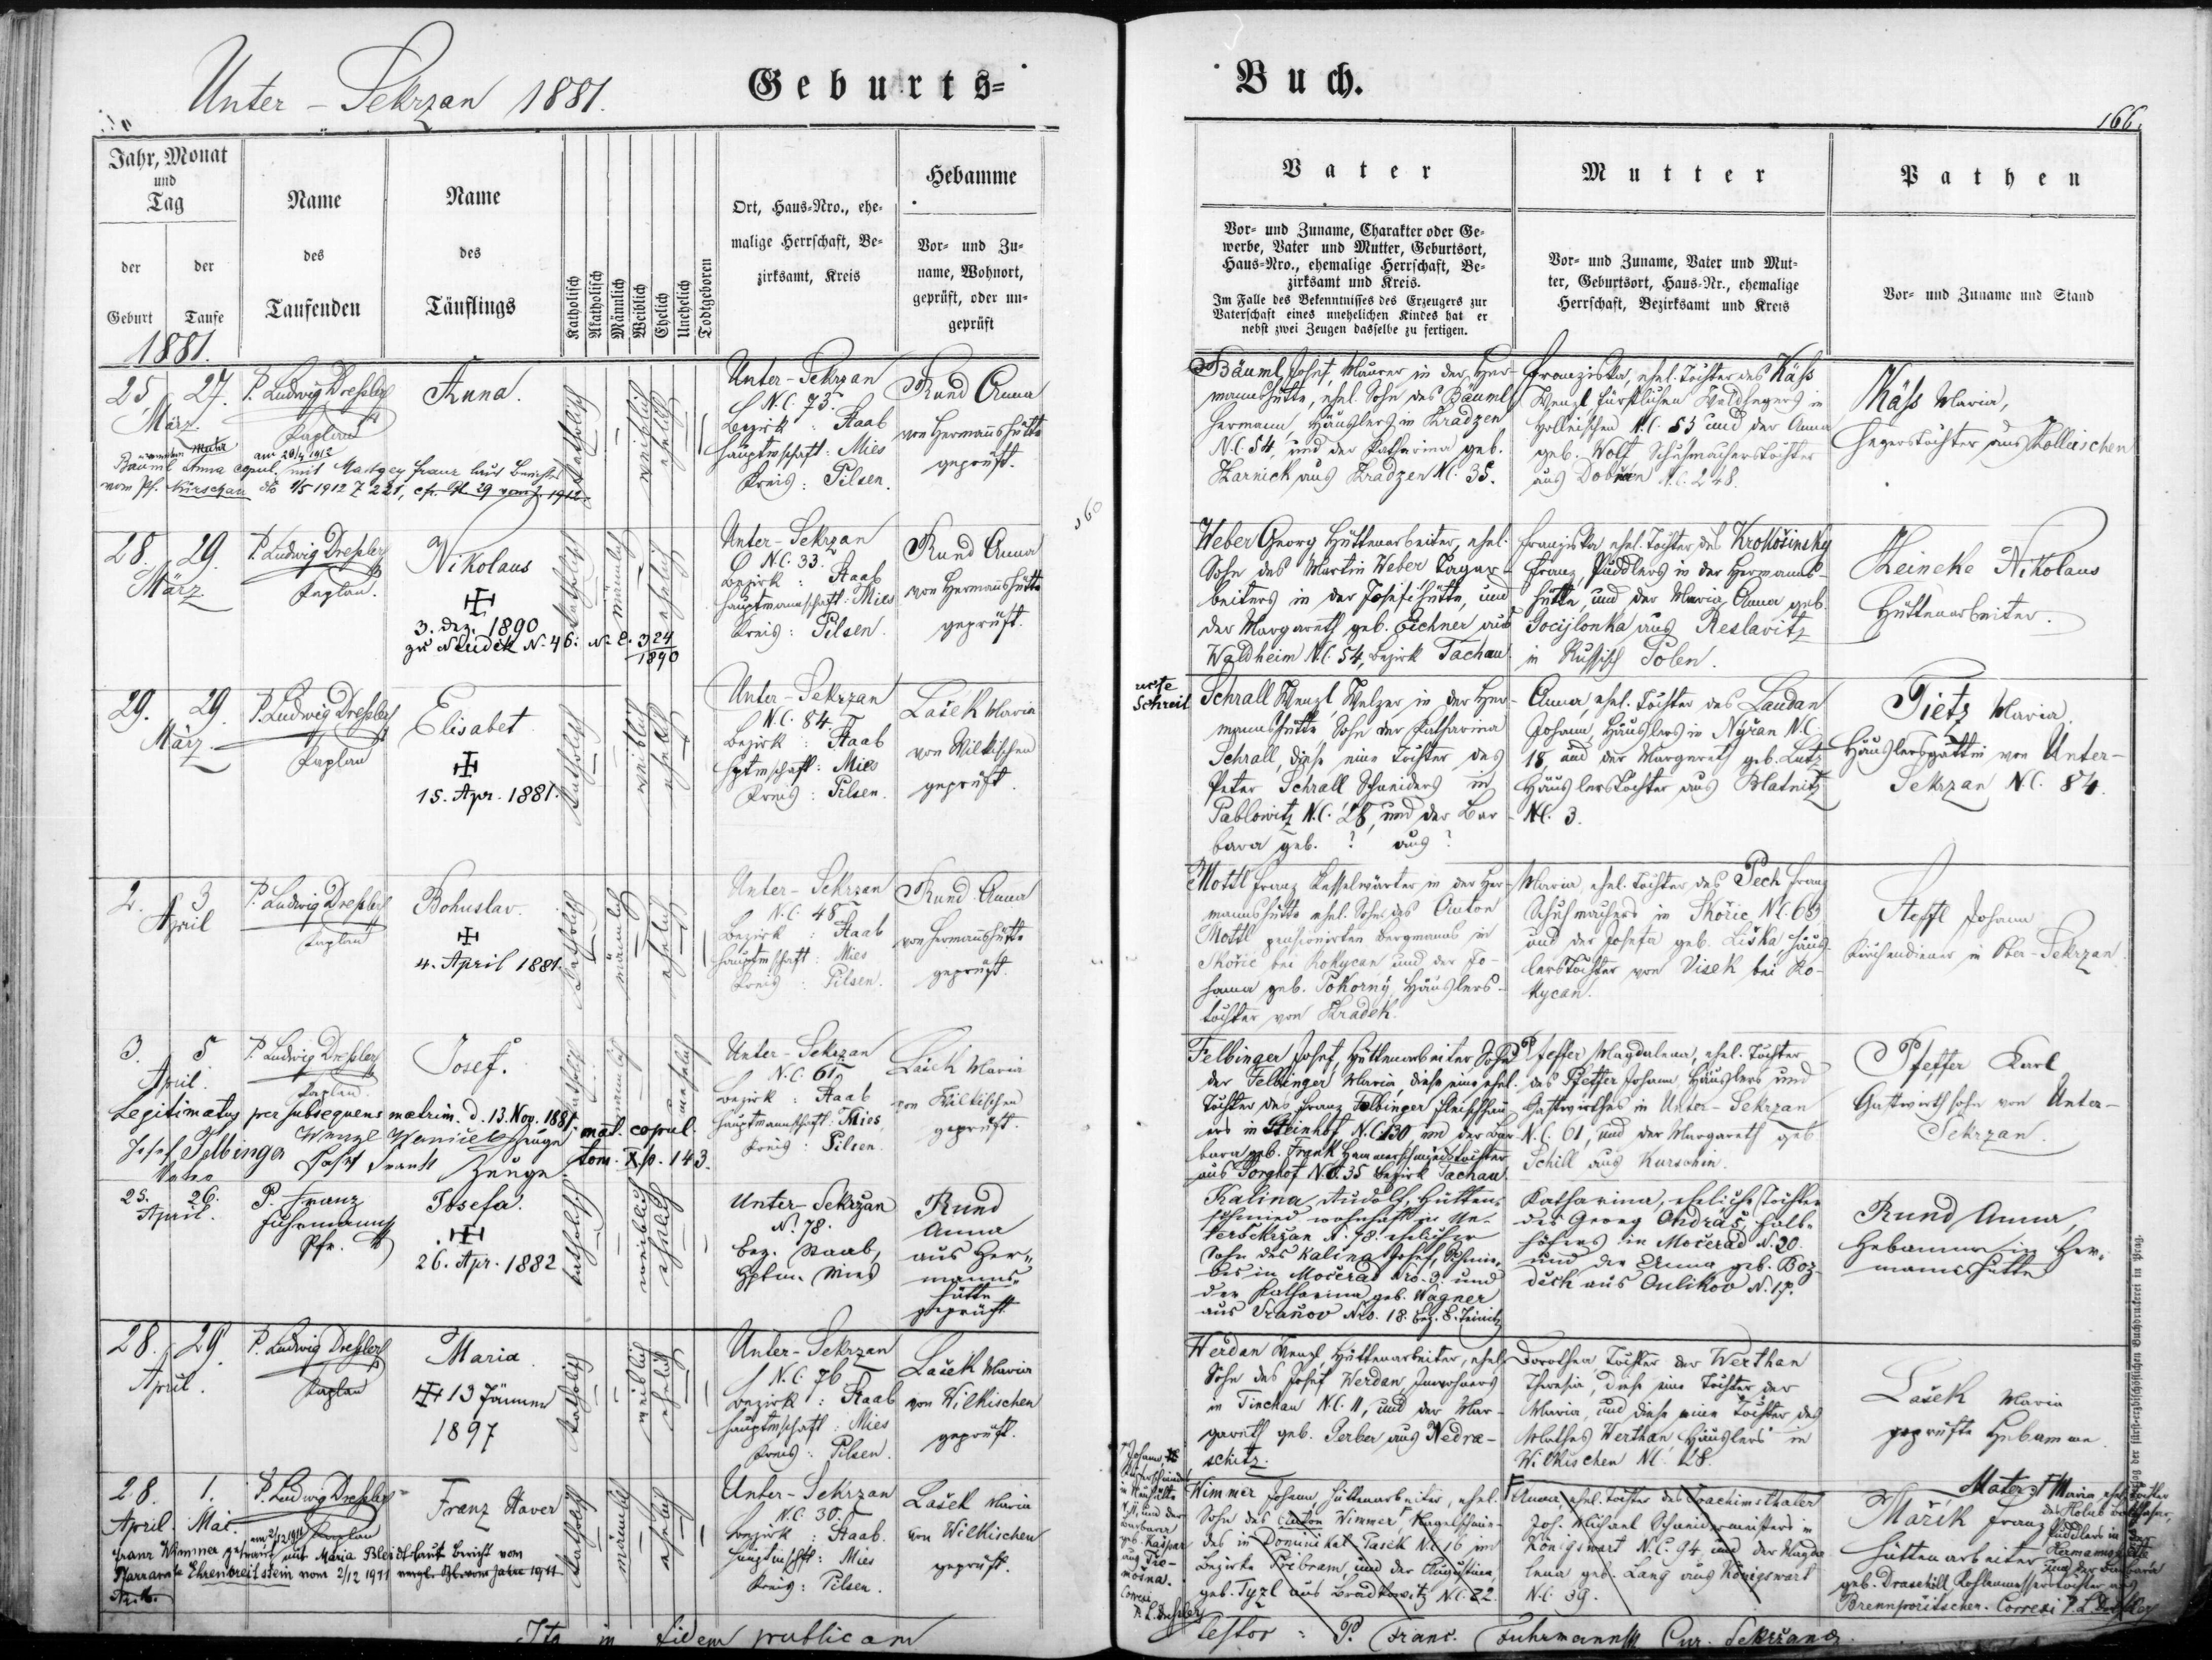 Unter-Sekrzan 1881.
Geburts-
Jahr, Monat
und
Tag
der
Geburt
der
Taufe
Name
des
Taufenden
Name
des
Täuflings
Katholisch
Akatholisch
Männlich
Weiblich
Ehelich
Unehelich
Todtgeboren
Ort, Haus-Nro., ehe-
malige Herrschaft, Be-
zirksamt, Kreis
Hebamme
Vor- und Zu-
name, Wohnort,
geprüft, oder un-
geprüft
1881.
25. 27.
März.
P. Ludwig Dressler
Kaplan
Anna.
katholisch
weiblich
ehelich
Unter-Sekrzan
N.C. 73.
Bezirk: Staab
Hauptmschaft: Mies
Kreis: Pilsen.
Rund Anna
von Hermannshütte
geprüft.
Bäuml Anna copul. mit Mastgey Franz laut Bericht
vom Pf. Nürschan dto 4/5 1912 Z 221,
28. 29.
März.
P. Ludwig Dressler
Kaplan.
Nikolaus
3. Dez. 1890
zu Neudek N. 46: N. E. 324/1890
katholisch
männlich
ehelich
Unter-Sekrzan
N.C. 33.
Bezirk: Staab
Hauptmannschaft: Mies
Kreis: Pilsen.
Rund Anna
von Hermannshütte
geprüft.
29. 29.
März.
P. Ludwig Dressler
Kaplan
Elisabet
15. Apr. 1881.
katholisch
weiblich
ehelich
Unter-Sekrzan
N.C. 84
Bezirk: Staab
Hptmschaft: Mies
Kreis: Pilsen.
Lašek Maria
von Wilkischen
geprüft.
2. 3.
April
P. Ludwig Dressler
Kaplan
Bohuslav.
4. April 1881.
katholisch
männlich
ehelich
Unter-Sekrzan
N.C. 48
Bezirk: Staab
Hauptmschaft: Mies
Kreis: Pilsen.
Rund Anna
von Hermannshütte
geprüft.
3. 5.
April.
P. Ludwig Dressler
Kaplan.
Josef.
katholisch
männlich
unehelich
Unter-Sekrzan
N.C. 61.
Bezirk: Staab
Hauptmannschaft: Mies
Kreis: Pilsen.
Lašek Maria
von Wilkischen
geprüft.
Legitimatus per subsequens matrim. d. 13. Nov. 1881. mat. copul.
tom. X. p. 143.
Josef Felbinger
Vater
Wenzl Zeuge
Josef Frank Zeuge
25. 26.
April.
P. Franz
Fuhrmann
Pfr.
Josefa.
26. Apr. 1882
katholisch
weiblich
ehelich
Unter-Sekrzan
N. 78.
Bez. Staab,
Hptm. Mies
Rund
Anna
aus Her-
manns-
hütte
geprüft
28. 29.
April.
P. Ludwig Dressler
Kaplan
Maria
13 Jänner
1897
katholisch
weiblich
ehelich
Unter-Sekrzan
N.C. 76
Bezirk: Staab
Hauptmschaft: Mies
Kreis: Pilsen.
Lašek Maria
von Wilkischen
geprüft.
28. 1.
April. Mai.
P. Ludwig Dressler
Kaplan
Franz Xaver
katholisch
männlich
ehelich
Unter-Sekrzan
N.C. 30.
Bezirk: Staab.
Hauptmschft: Mies
Kreis: Pilsen.
Lašek Maria
von Wilkischen
geprüft.
Franz Wimmer getraut mit Maria Bleidt laut Bericht vom
Pfarramte Ehrenbreitstein vom 2/12 1911
Ita in fidem publicam
Buch.
166.
Vater
Vor- und Zuname, Charakter oder Ge-
werbe, Vater und Mutter, Geburtsort,
Haus-Nro., ehemalige Herrschaft, Be-
zirksamt und Kreis.
Im Falle des Bekenntnisses des Erzeugers zur
Vaterschaft eines unehelichen Kindes hat er
nebst zwei Zeugen dasselbe zu fertigen.
Mutter
Vor- und Zuname, Vater und Mut-
ter, Geburtsort, Haus-Nr., ehemalige
Herrschaft, Bezirksamt und Kreis
Pathen
Vor- und Zuname und Stand
Bäuml Josef, Maurer in der Her-
mannshütte, ehel. Sohn des Bäuml
Hermann, Häuslers in Hradzen
N.C. 54, und der Katharina geb.
Harnick aus Hradzen N.C. 35.
Franziska, ehel. Tochter des Käss
Wenzl, fürstlichen Waldhegers in
Holleischen N.C. 53 und der Anna
geb. Wolf Schuhmacherstochter
aus Dobřan N.C. 248.
Käss Maria,
Hegerstochter aus Holleischen
Weber Georg Hüttenarbeiter, ehel.
Sohn des Martin Weber Tagar-
beiters in der Josefihütte, und
der Margareth geb. Eichner aus
Waldheim N.C. 54, Bezirk Tachau.
Franziska ehel. Tochter des Krokošinsky
Franz, Puddlers in der Hermanns-
hütte, und der Maria Anna geb.
Jocijlonka aus Reslavitz
in Russisch Polen.
Heineke Nikolaus
Hüttenarbeiter.
recte
Schreil
Schrall Wenzl Walzer in der Her-
mannshütte Sohn der Katharina
Schrall, diese eine Tochter des
Peter Schrall Schneiders in
Pablowitz N.C. 28, und der Bar-
bara geb. ? aus ?
Anna, ehel. Tochter des Laudan
Johann, Häuslers in Nyran N.C.
18, und der Margareth geb. Lutz
Häuslerstochter aus Blatnitz
N.C. 3.
Tietz Maria
Häuslersgattin von Unter-
Sekrzan N.C. 84.
Mottl Franz Kesselwärter in der Her-
mannshütte ehel. Sohn des Anton
Mottl pensionirten Bergmanns in
Skořic bei Rokycan und der Jo-
hanna geb. Pokorný, Häuslers-
tochter von Hradek.
Maria, ehel. Tochter des Pech Franz
Schuhmachers in Skořic N.C. 63
und der Josefa geb. Liška Häus-
lerstochter von Visek bei Ro-
kycan.
Steffl Johann
Kirchendiener in Ober-Sekrzan.
Felbinger Josef, Hüttenarbeiter Sohn
der Felbinger Maria, diese eine ehel.
Tochter des Franz Felbinger Fleischhau-
ers in Steinhof N.C. 130, und der Bar-
bara geb. Frank Hammerschmiedstochter
aus Sorghof N.C. 35 Bezirk Tachau
Pfeffer Magdalena, ehel. Tochter
des Pfeffer Johann, Häuslers und
Gastwirthes in Unter-Sekrzan
N.C. 61, und der Margareth geb.
Schill aus Kurschin.
Pfeffer Karl
Gastwirthssohn von Unter-
Sekrzan.
Kalina Rudolf, Hütten-
schmied wohnhaft in Un-
tersekrzan N. 78. ehelicher
Sohn des Kalina Josef, Schmie-
des in Močerad Nro. 3. und
der Katharina geb. Wagner
aus Vranov Nro. 18. Bez. B. Teinitz
Katharina, eheliche Tochter
des Georg Ondraš, Halb-
höfers in Močerad N. 20.
und der Anna geb. Boz-
dech aus Oulikov N. 17.
Rund Anna,
Hebamme in Her-
mannshütte
Werdan Wenzl, Hüttenarbeiter, ehel.
Sohn des Josef Werdan, Inwohners
in Tinchau N.C. 11, und der Mar-
gareth geb. Gerber aus Nedra-
schitz.
Dorothea Tochter der Werthan
Theresia, diese eine Tochter der
Maria, und diese eine Tochter des
Mathes Werthan Häuslers in
Wilkischen N.C. 28.
Lašek Maria
geprüfte Hebamme
Wimmer Johann Hüttenarbeiter, ehel.
Sohn des Anton Wimmer, Nagelschmie-
des in Dominikal Pasek N.C. 16 im
Bezirke Přibram, und der Augustina,
geb. Tyzl aus Bradkowitz N.C. 22.
Anna, ehel. Tochter des Joachimsthaler
Joh. Michael Schneidermeisters in
Königswart N.C. 94 und der Magda-
lena geb. Lang aus Königswart
N.C. 39.
Mařik Franz
Hüttenarbeiter
Mater: Maria, ehel. Tochter
des Holub
Puddlers in der
Hermannshütte
und der Barbara
geb. Kohlenmesserstochter aus
Brennporitschen. Correxi P. L. Dressler
Johann
in Neuhütte
und der
Barbara
geb. Kašpar
aus
Correxi
P. L. Dressler
testor: P. Franc. Fuhrmann Cur. Sekržana.